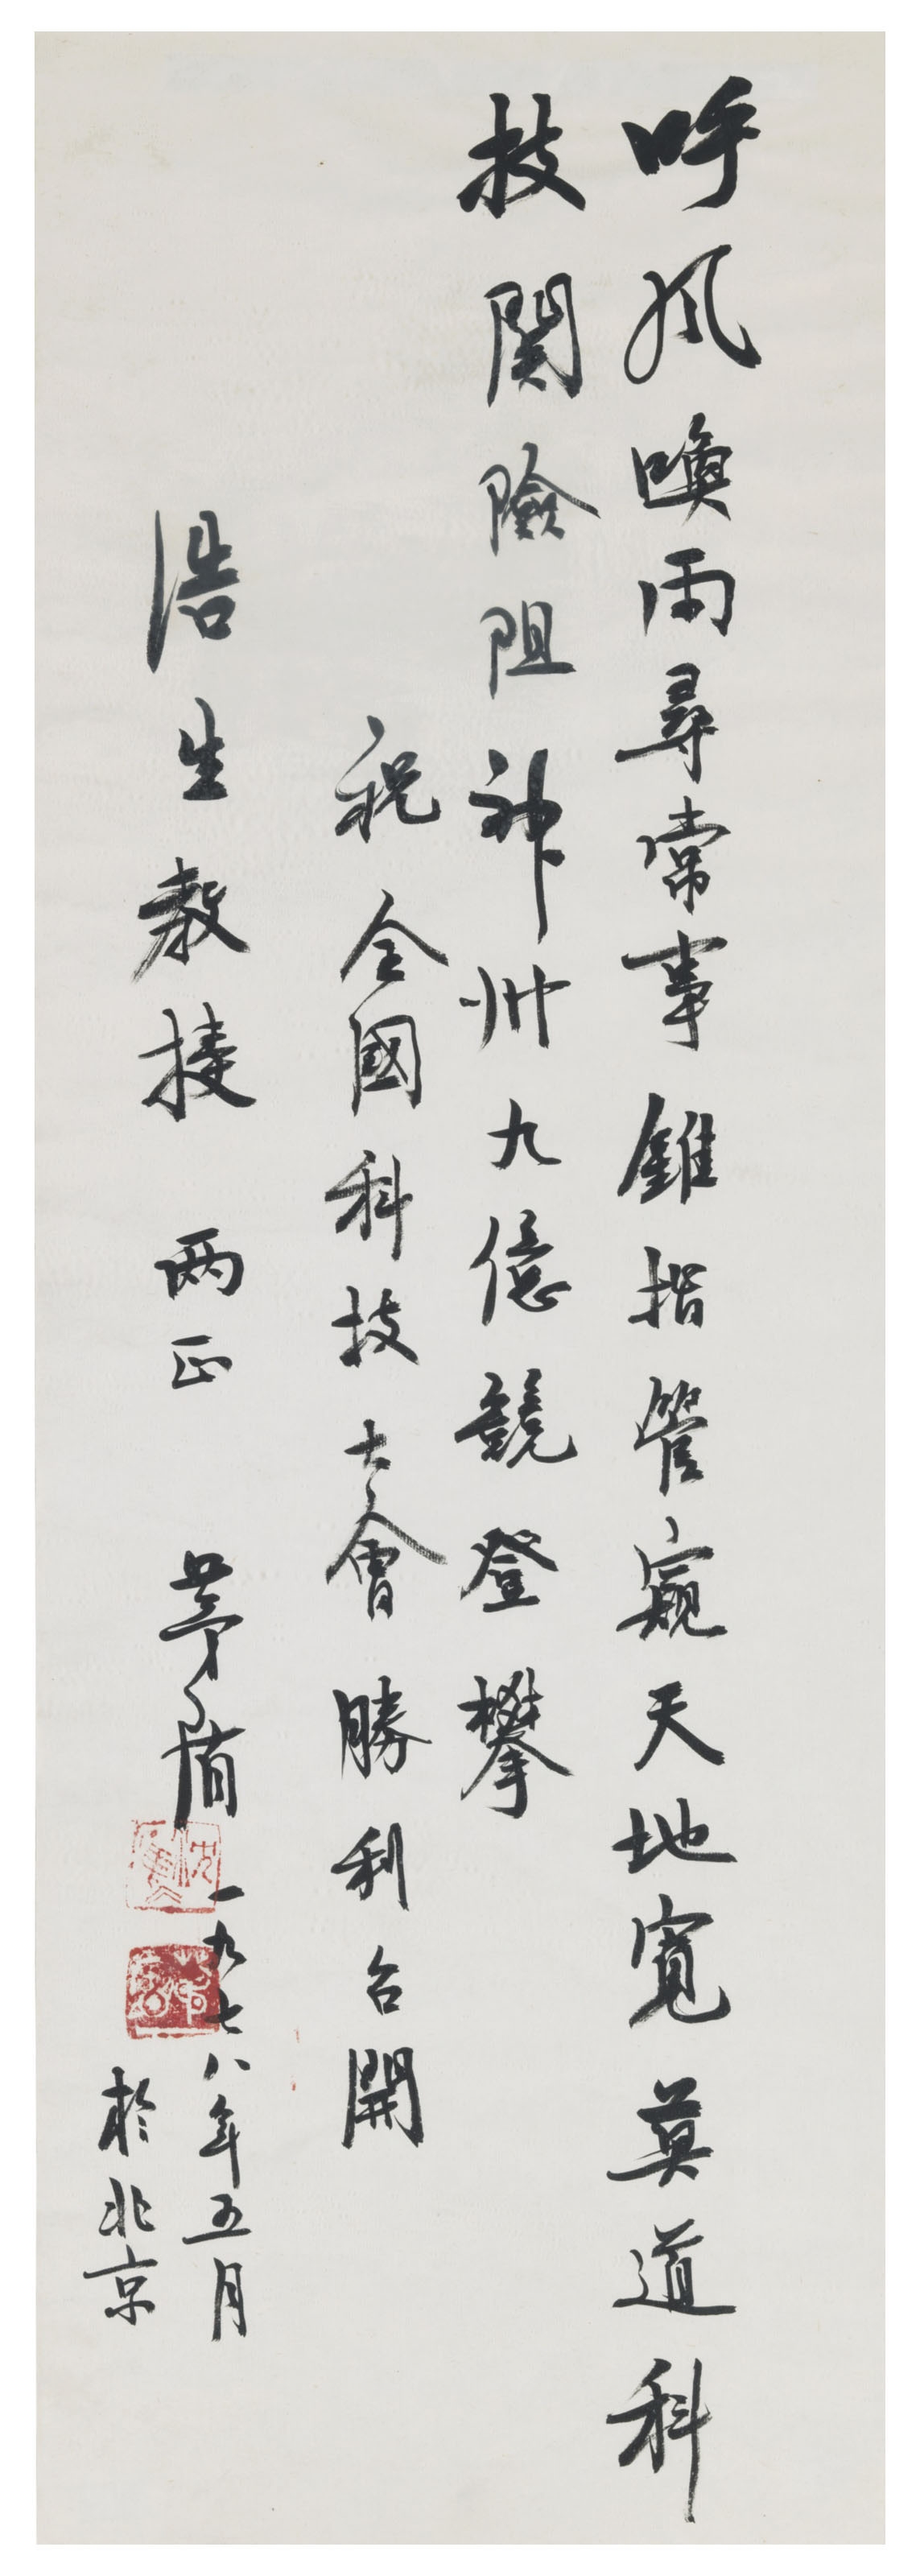 呼風喚雨尋常事錐指管窺天地寬莫道科
技関險阻神州九億競登攀
祝全國科技大會勝利召開
浩生教授两正
茅盾
一九七八年五月
於北京